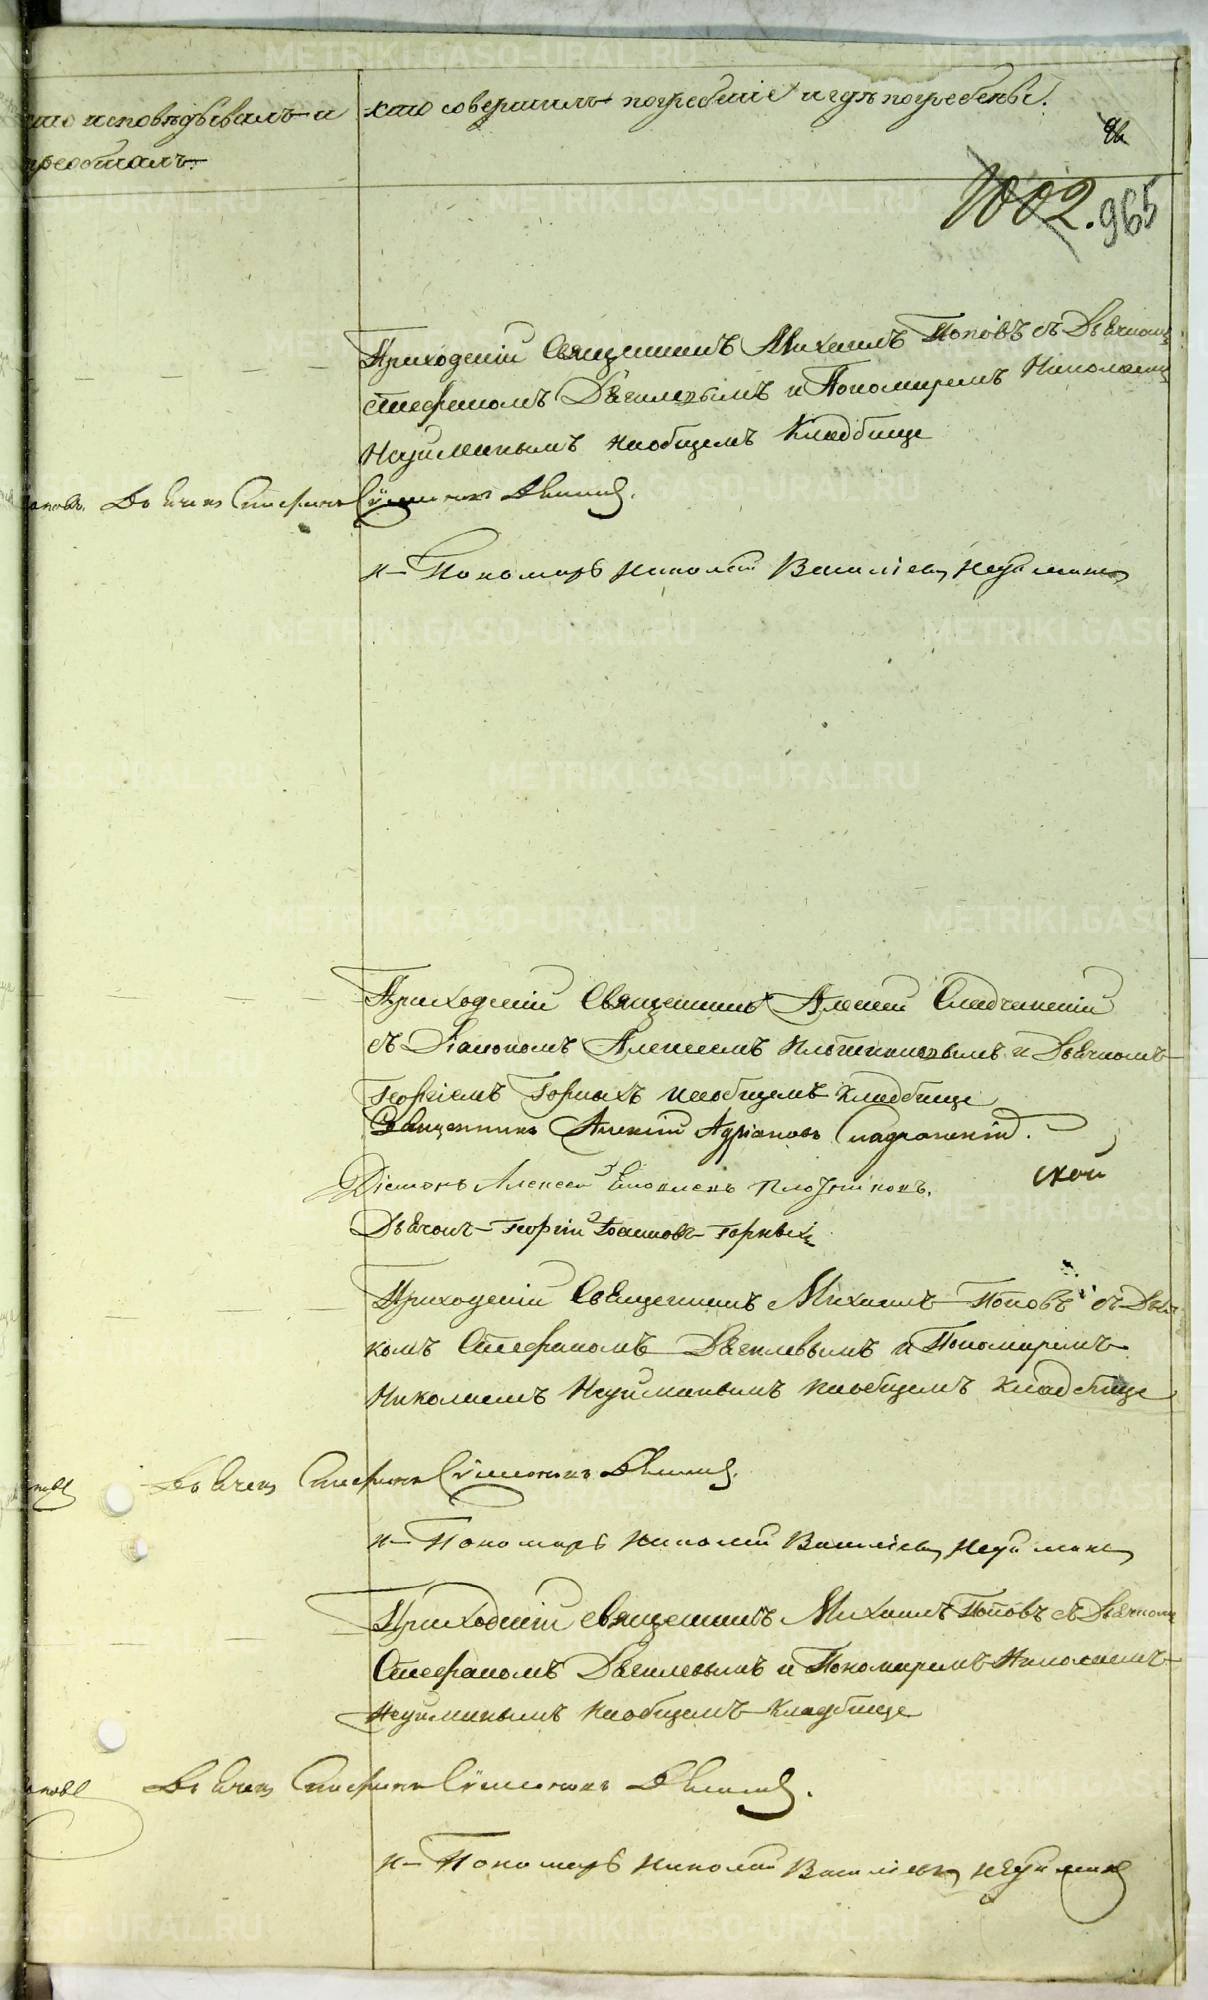 кто исповѣдывалъ и
кто совершилъ погребеніе и гдѣ погребены.
1002. 965
Приходскій Священникъ Михаилъ Поповъ съ Дьячкомъ
Стефаномъ Дягилевымъ и Пономаремъ Николаемъ
Неуйминымъ на общемъ Кладбище
Дьячекъ Стефанъ Сѵмеоновъ Дягилевъ.
и Пономарь Николай Васильевъ Неуйминъ
Приходскій Священникъ Алексей Сладчинскій
съ Діакономъ Алексеемъ Плотниковымъ и Дьячкомъ
Георгіемъ Горныхъ на общемъ кладбище
Священникъ Алексій Адріановъ
Діаконъ Алексей Плотниковъ.
ской
Дьячокъ Георгій Іоанновъ Горныхъ
Приходскій Священникъ Михаилъ Поповъ съ Дьяч-
комъ Стефаномъ Дягилевымъ и Пономаремъ
Николаемъ Неуйминымъ на общемъ кладбище
Дьячекъ Стефанъ Сѵмеоновъ Дягилевъ.
и Пономарь Николай Васильевъ Неуйминъ
Приходскій Священникъ Михаилъ Поповъ съ Дьячкомъ
Стефаномъ Дягилевымъ и Пономаремъ Николаемъ
Неуйминымъ на общемъ кладбище
Дьячекъ Стефанъ Сѵмеоновъ Дягилевъ.
и Пономарь Николай Васильевъ Неуйминъ
METRIKI.GASO-URAL.RU